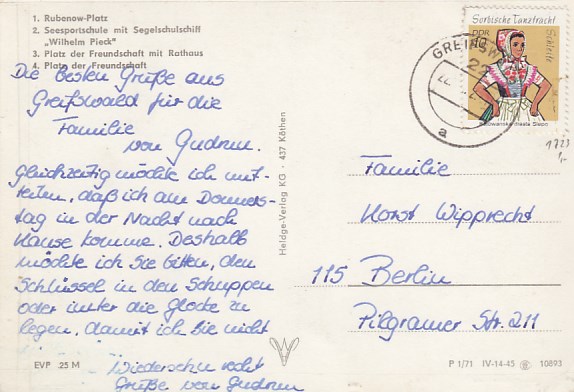 1. Rubenow-Platz
2. Seesportschule mit Segelschulschiff
„Wilhelm Pieck"
3. Platz der Freundschaft mit Rathaus
4. Platz der Freundschaft
Die besten Grüße aus
Greifswald für die
Familie
von Gudrun.
Gleichzeitig möchte ich mit-
teilen, daß ich am Donners-
tag in der Nacht nach
Hause komme. Deshalb
möchte ich Sie bitten, den
Schlüssel in den Schuppen
oder unter die Glocke zu
legen, damit ich Sie nicht
Wiedersehn
Grüße von Gudrun
EVP .25 M
Heldge-Verlag KG · 437 Köthen
Sorbische Tanztracht
DDR
10
Schleife
GREIFSW
22
a
1723
Familie
Horst Wipprecht
115 Berlin
Pilgramer Str. 211
P 1/71 IV-14-45 10893